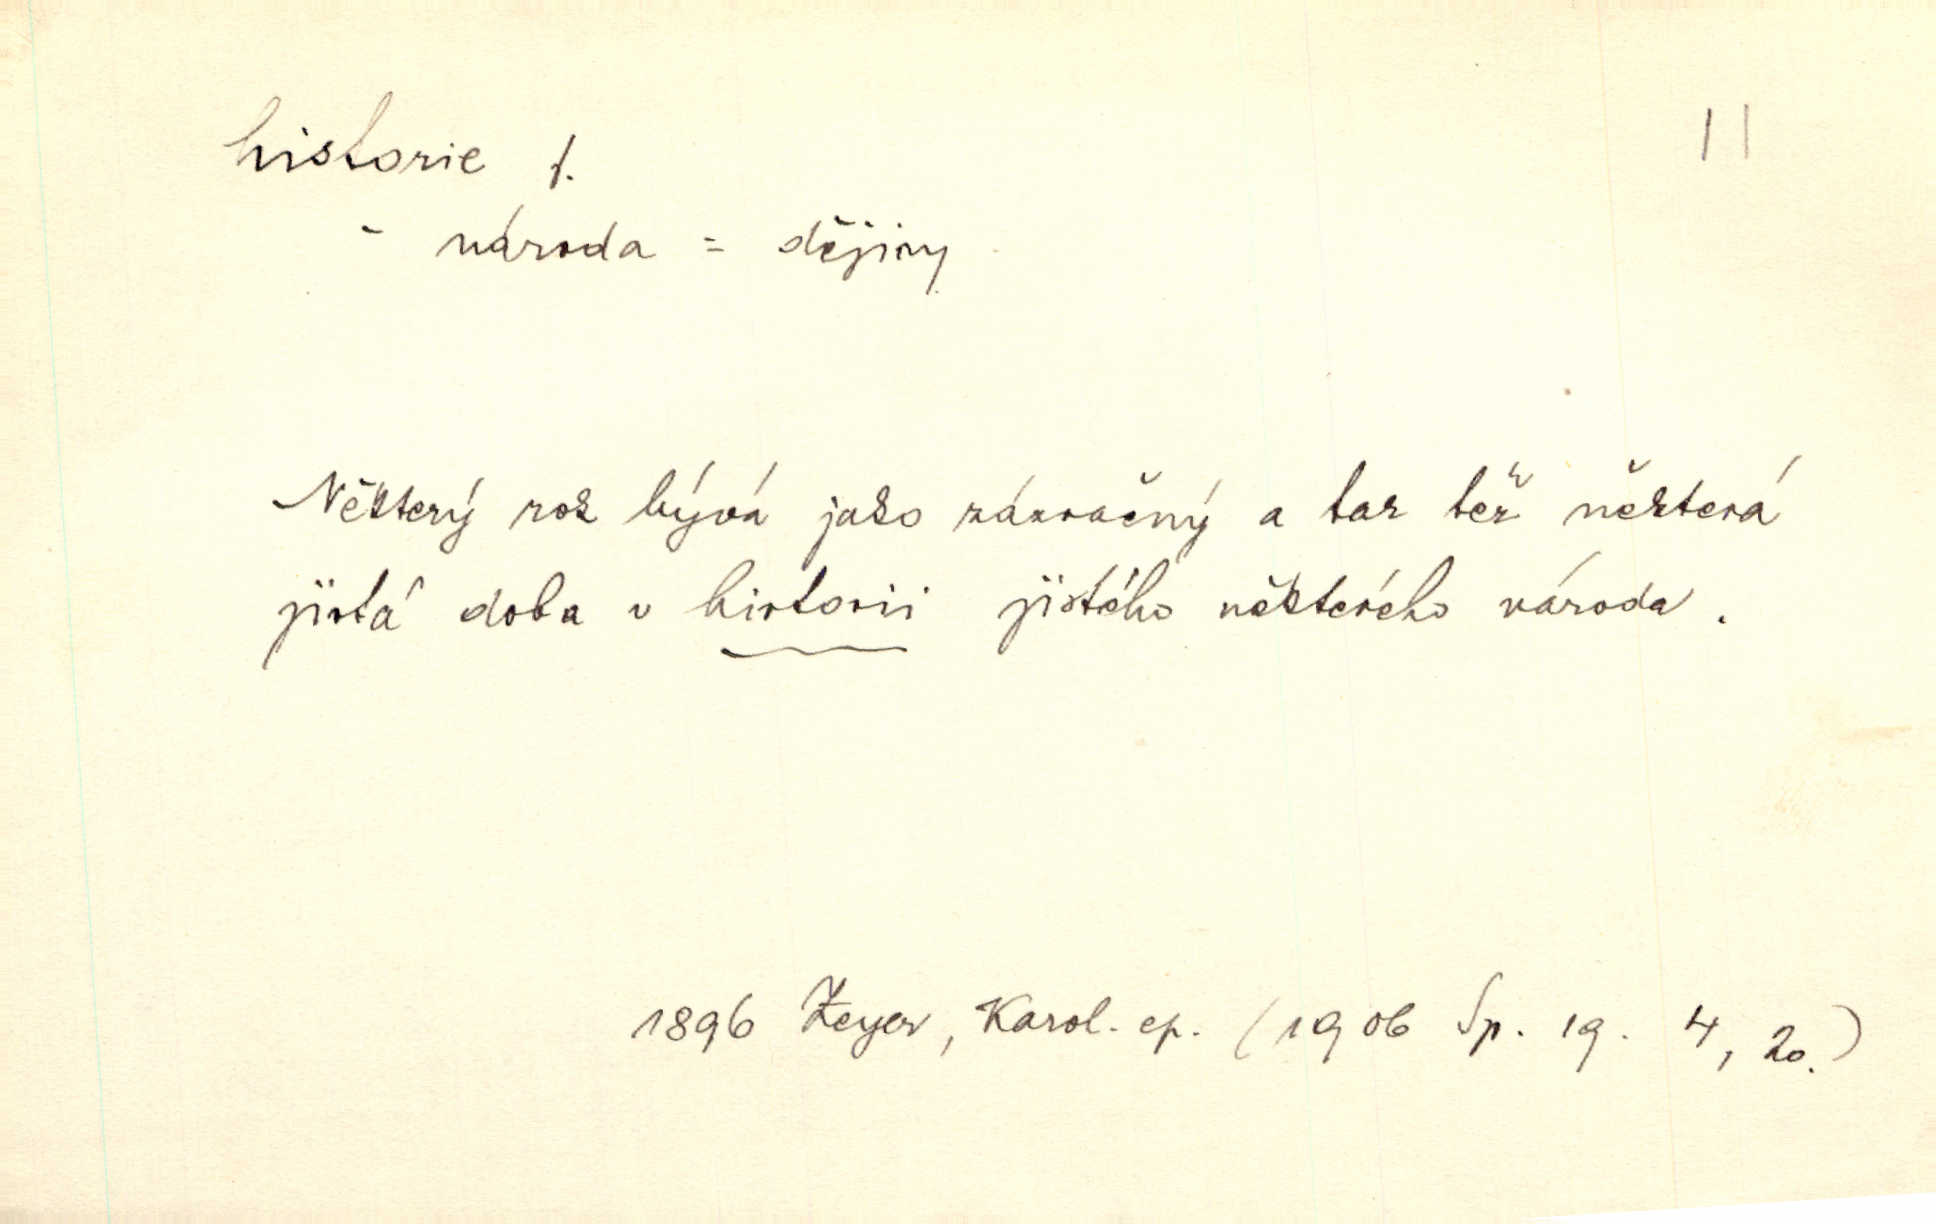 historie f. 11
- národa = dějiny
Některý rok bývá jako zázračný a tak též některá
jistá doba v historii jistého některého národa.
1896 Zeyer, Karol. ep. (1906 Sp. 19. 4, 20.)